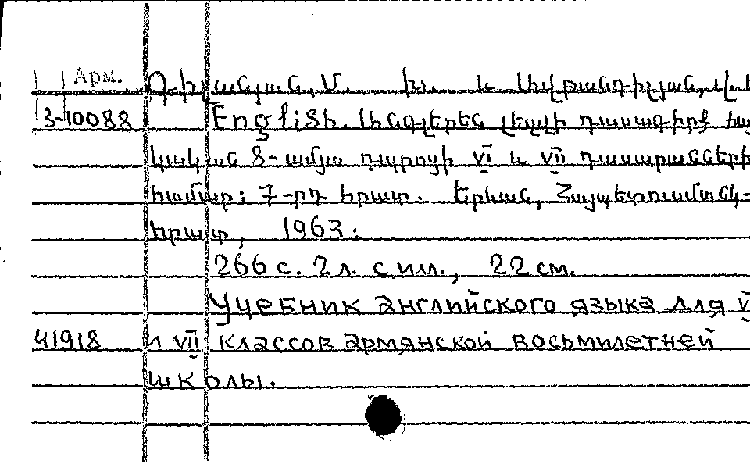 Арм.
3-10088 English. Անգլերեն լեզվի դասագիրք հայ
կական 8-ամյա դպրոցի VI և VII դասարանների
համար: 7-րդ հրատ. Երևան, Հայպետուսմանկ-
հրատ, 1963:
266 с. 2л. с ил., 22 см.
Учебник английского языка для V
41918 и VII классов армянской восьмилетней
школы.